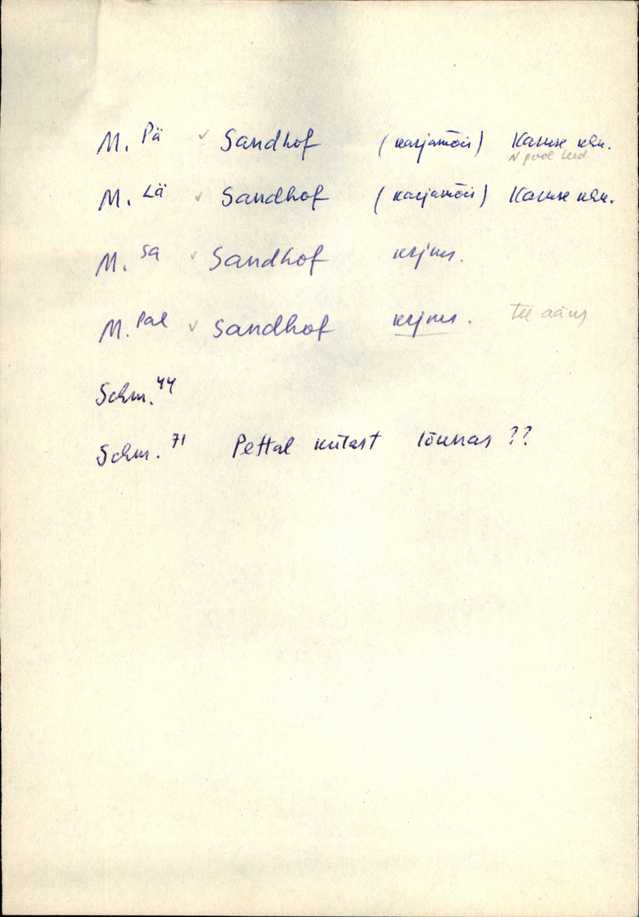 M. Pä ✓ Sandhof (karjamõis) Karuse khk.
N pool teed
M. Lä ✓ Sandhof (karjamõis) Karuse khk.
M. Sa ✓ Sandhof krjms.
M. Pal ✓ Sandhof krjms. tee ääres
Schm. 44
Schm. 71 Pettal külast lõunas ??